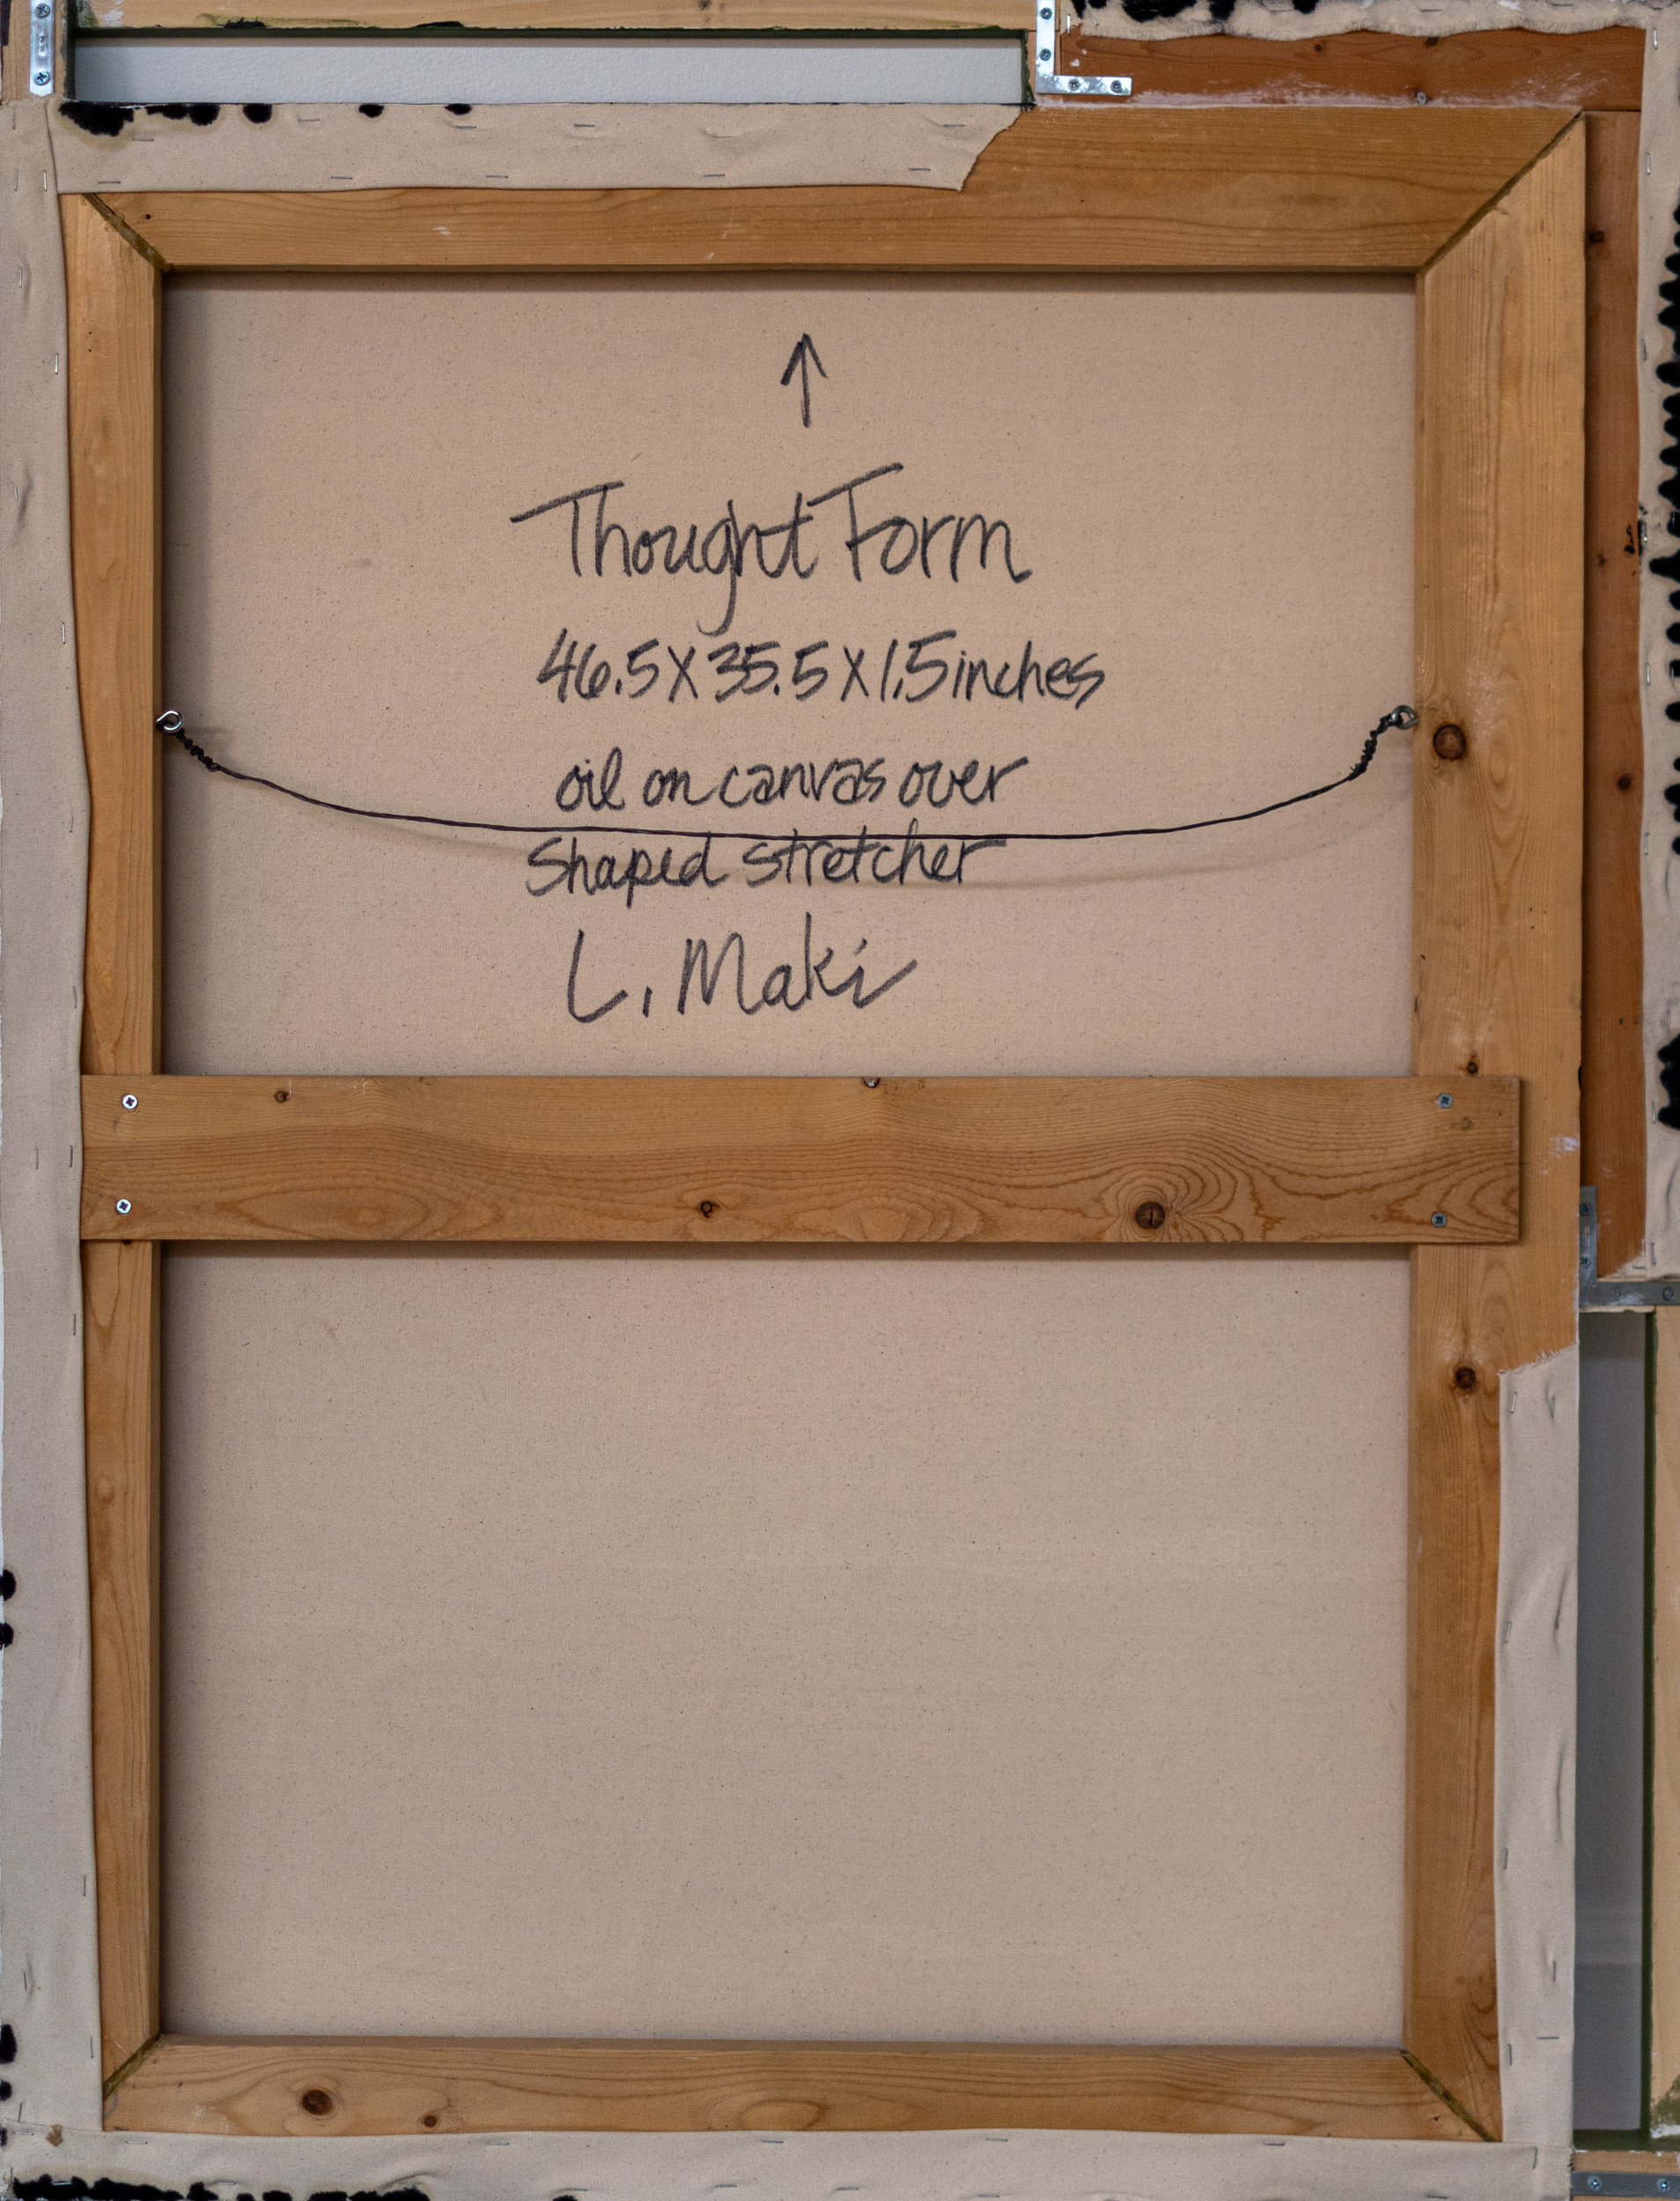 ↑
Thought Form
46.5 X 35.5 X 1.5 inches
oil on canvas over
Shaped stretcher
L. Maki